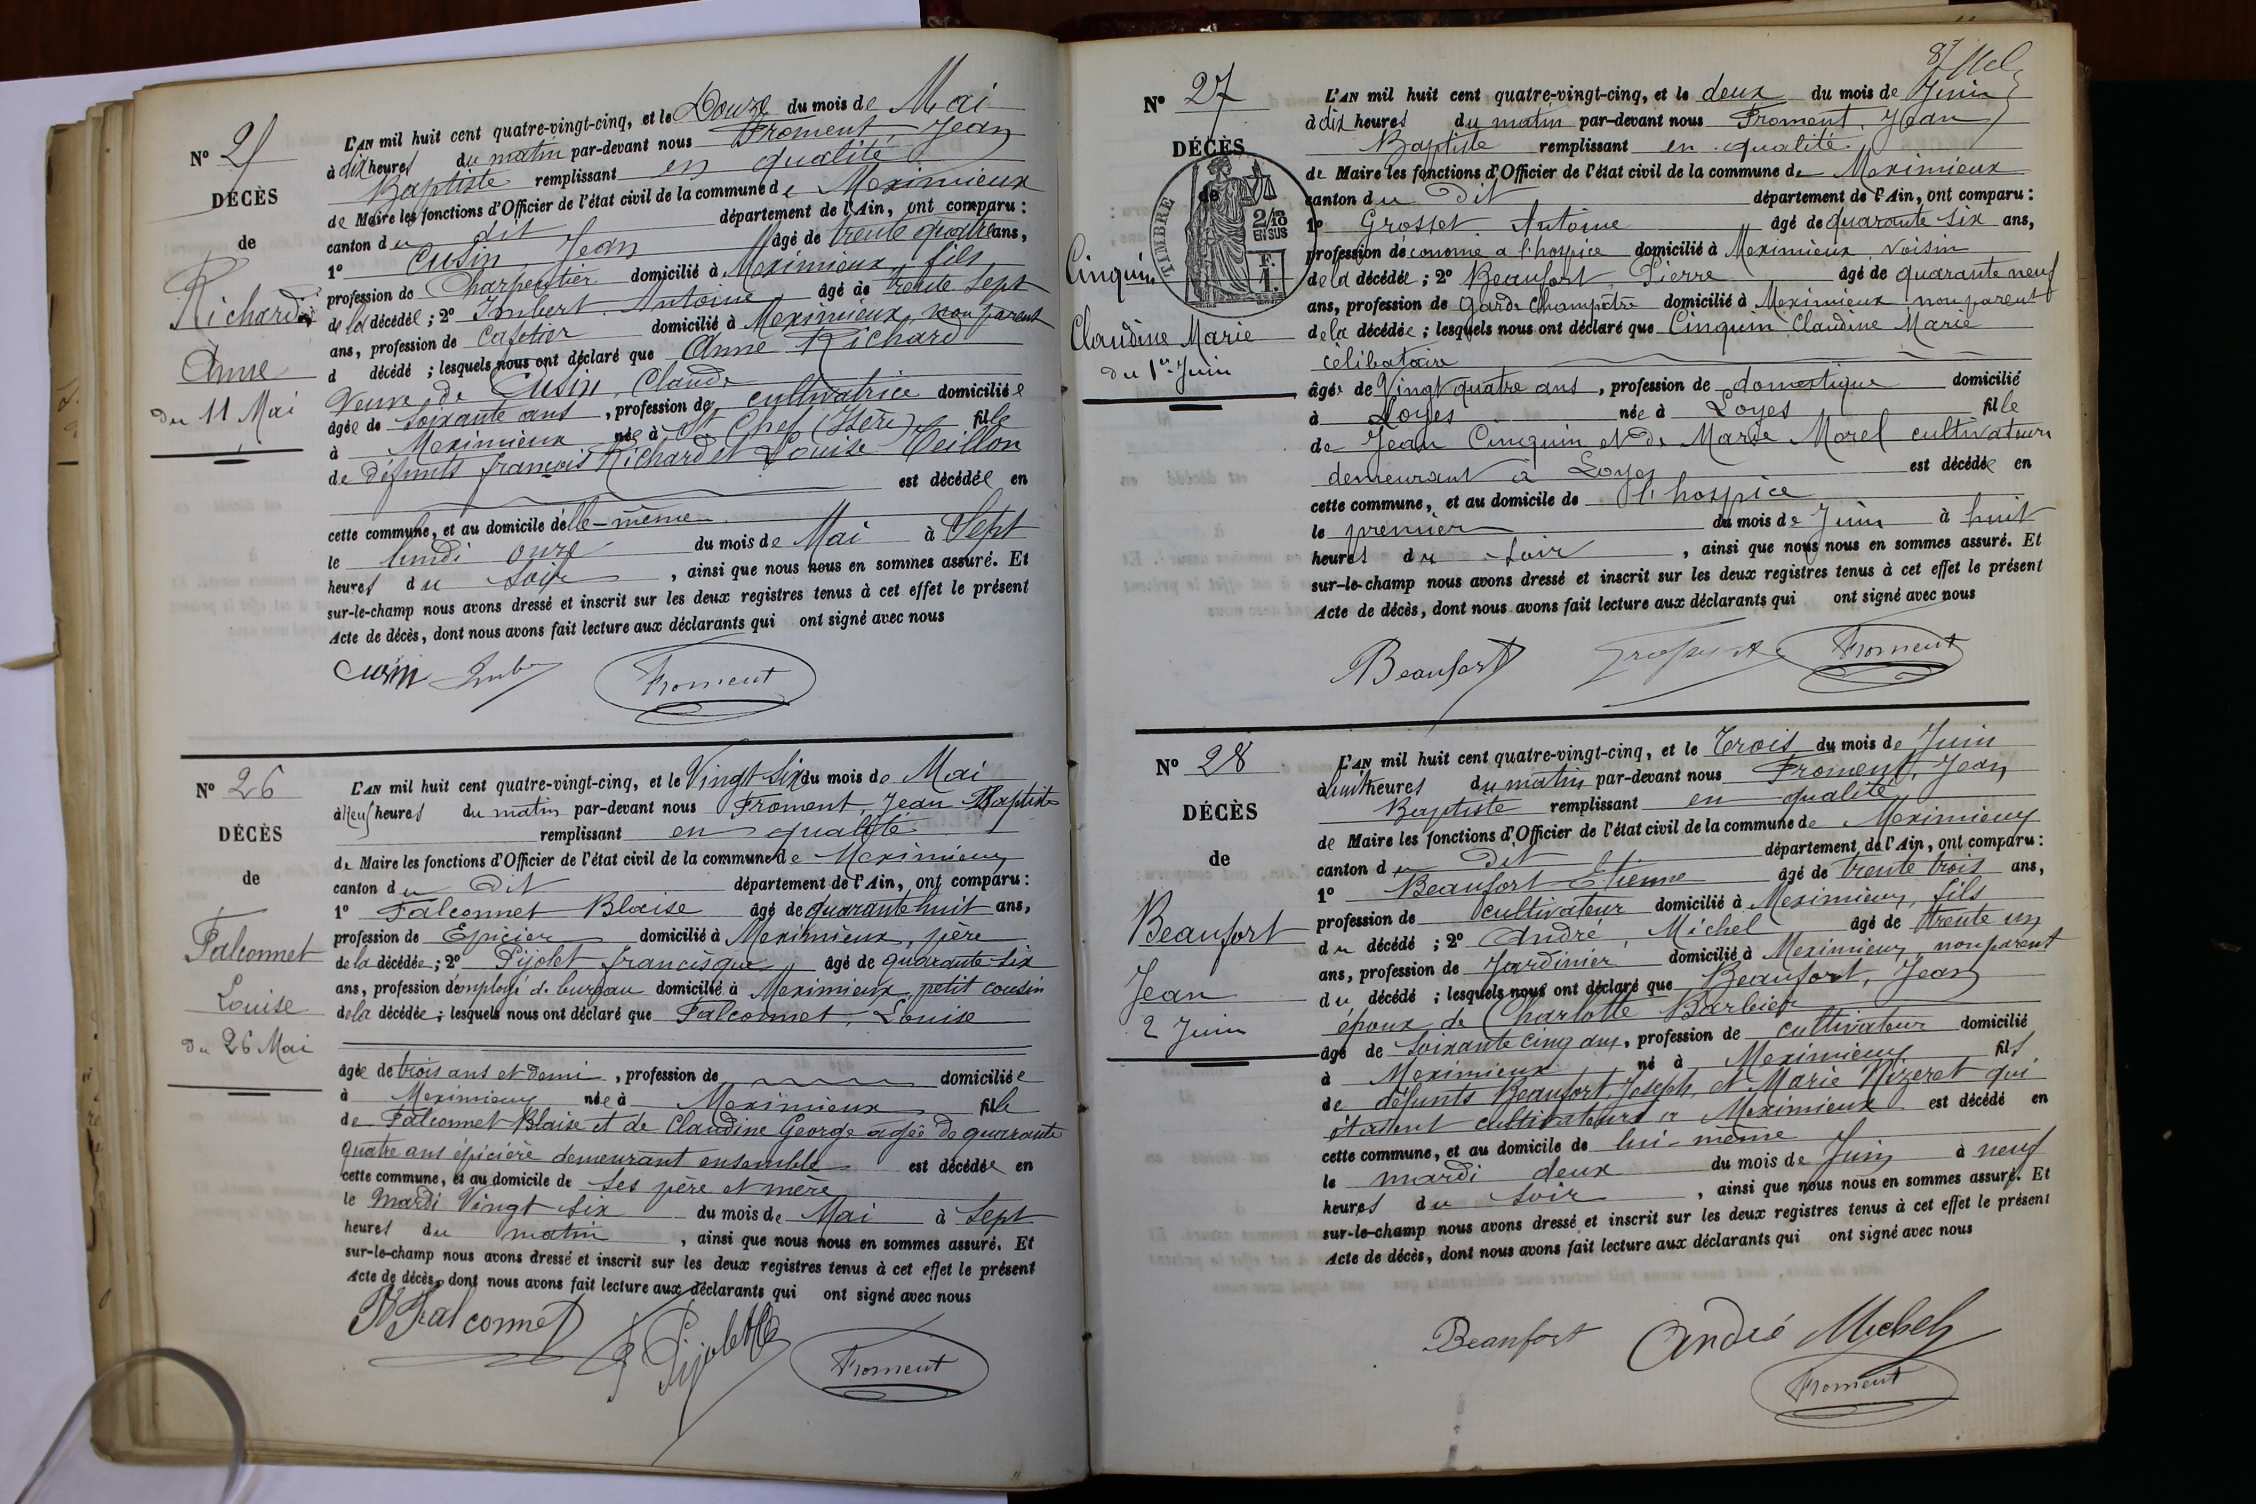 N° 25
DÉCÈS
de
Richard
Anne
du 11 Mai
L'AN mil huit cent quatre-vingt-cinq, et le Douze du mois de Mai
à dix heures du matin par-devant nous Froment, Jean
Baptiste remplissant en qualité
de Maire les fonctions d'Officier de l'état civil de la commune de Meximieux
canton du dit département de l'Ain, ont comparu :
1° Cusin Jean âgé de trente quatre ans,
profession de Charpentier domicilié à Meximieux, fils
de la décédée ; 2° Imbert Antoine âgé de trente sept
ans, profession de Cafetier domicilié à Meximieux, non parent
d décédé ; lesquels nous ont déclaré que Anne Richard
Veuve de Cusin, Claude
âgée de soixante ans, profession de cultivatrice domiciliée
à Meximieux née à St Chef (Isère) fille
de défunts françois Richard et Louise Teillon
est décédée en
cette commune, et au domicile d'elle-même
le lundi onze du mois de Mai à Sept
heures du soir, ainsi que nous nous en sommes assuré. Et
sur-le-champ nous avons dressé et inscrit sur les deux registres tenus à cet effet le présent
Acte de décès, dont nous avons fait lecture aux déclarants qui ont signé avec nous
Cusin Imb Froment
N° 26
DÉCÈS
de
Falconnet
Louise
du 26 Mai
L'AN mil huit cent quatre-vingt-cinq, et le Vingt six du mois de Mai
à Neuf heures du matin par-devant nous Froment, Jean Baptiste
remplissant en qualité
de Maire les fonctions d'Officier de l'état civil de la commune de Meximieux
canton du Dit département de l'Ain, ont comparu :
1° Falconnet Blaise âgé de quarante huit ans,
profession de Epicier domicilié à Meximieux, père
de la décédée ; 2° Pijolet francisque âgé de quarante-six
ans, profession d'employé de bureau domicilié à Meximieux, petit cousin
de la décédée ; lesquels nous ont déclaré que Falconnet, Louise
âgée de trois ans et demi, profession de domiciliée
à Meximieux née à Meximieux fille
de Falconnet Blaise et de Claudine George agée de quarante
quatre ans épicière demeurant ensemble est décédée en
cette commune, et au domicile de ses père et mère
le Mardi Vingt six du mois de Mai à Sept
heures du matin, ainsi que nous nous en sommes assuré. Et
sur-le-champ nous avons dressé et inscrit sur les deux registres tenus à cet effet le présent
Acte de décès, dont nous avons fait lecture aux déclarants qui ont signé avec nous
B Falconnet F Pijolet Froment
N° 27
DÉCÈS
de
TIMBRE
2/10 EN SUS
F. 1.
Cinquin
Claudine Marie
du 1er Juin
L'AN mil huit cent quatre-vingt-cinq, et le deux du mois de Juin
à dix heures du matin par-devant nous Froment, Jean
Baptiste remplissant en qualité
de Maire les fonctions d'Officier de l'état civil de la commune de Meximieux
canton du Dit département de l'Ain, ont comparu :
1° Grosset Antoine âgé de quarante six ans,
profession d'économe a l'hospice domicilié à Meximieux voisin
de la décédée ; 2° Beaufort, Pierre âgé de quarante neuf
ans, profession de Garde Champêtre domicilié à Meximieux non parent
de la décédée ; lesquels nous ont déclaré que Cinquin Claudine Marie
célibataire
âgée de Vingt quatre ans, profession de domestique domicilié
à Loyes née à Loyes fille
de Jean Cinquin et de Marie Morel cultivateurs
demeurant à Loyes est décédée en
cette commune, et au domicile de l'hospice
le premier du mois de Juin à huit
heures du soir, ainsi que nous nous en sommes assuré. Et
sur-le-champ nous avons dressé et inscrit sur les deux registres tenus à cet effet le présent
Acte de décès, dont nous avons fait lecture aux déclarants qui ont signé avec nous
Beaufort Grosset Froment
N° 28
DÉCÈS
de
Beaufort
Jean
2 Juin
L'AN mil huit cent quatre-vingt-cinq, et le Trois du mois de Juin
à huit heures du matin par-devant nous Froment, Jean
Baptiste remplissant en qualité
de Maire les fonctions d'Officier de l'état civil de la commune de Meximieux
canton du Dit département de l'Ain, ont comparu :
1° Beaufort Etienne âgé de trente trois ans,
profession de cultivateur domicilié à Meximieux, fils
du décédé ; 2° André, Michel âgé de trente un
ans, profession de Jardinier domicilié à Meximieux, non parent
du décédé ; lesquels nous ont déclaré que Beaufort, Jean
époux de Charlotte Barbier
âgé de soixante cinq ans, profession de cultivateur domicilié
à Meximieux né à Meximieux fils
de défunts Beaufort, Joseph, et Marie Nizeret qui
étaient cultivateurs à Meximieux est décédé en
cette commune, et au domicile de lui-même
le mardi deux du mois de Juin à neuf
heures du soir, ainsi que nous nous en sommes assuré. Et
sur-le-champ nous avons dressé et inscrit sur les deux registres tenus à cet effet le présent
Acte de décès, dont nous avons fait lecture aux déclarants qui ont signé avec nous
Beaufort André Michel
Froment